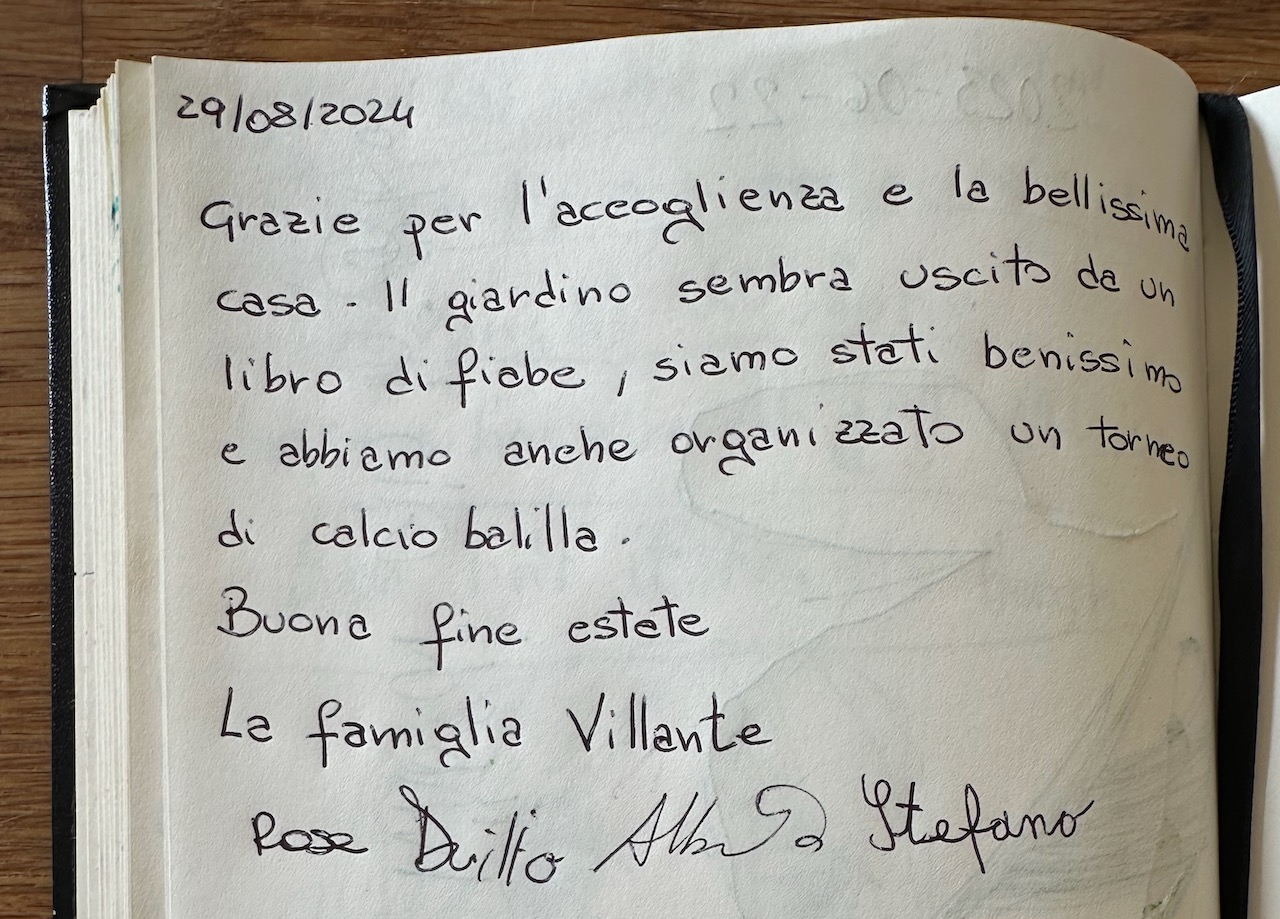 29/08/2024
Grazie per l'accoglienza e la bellissima
casa. Il giardino sembra uscito da un
libro di fiabe, siamo stati benissimo
e abbiamo anche organizzato un torneo
di calcio balilla.
Buona fine estate
La famiglia Villante
Rosa Duilio Stefano